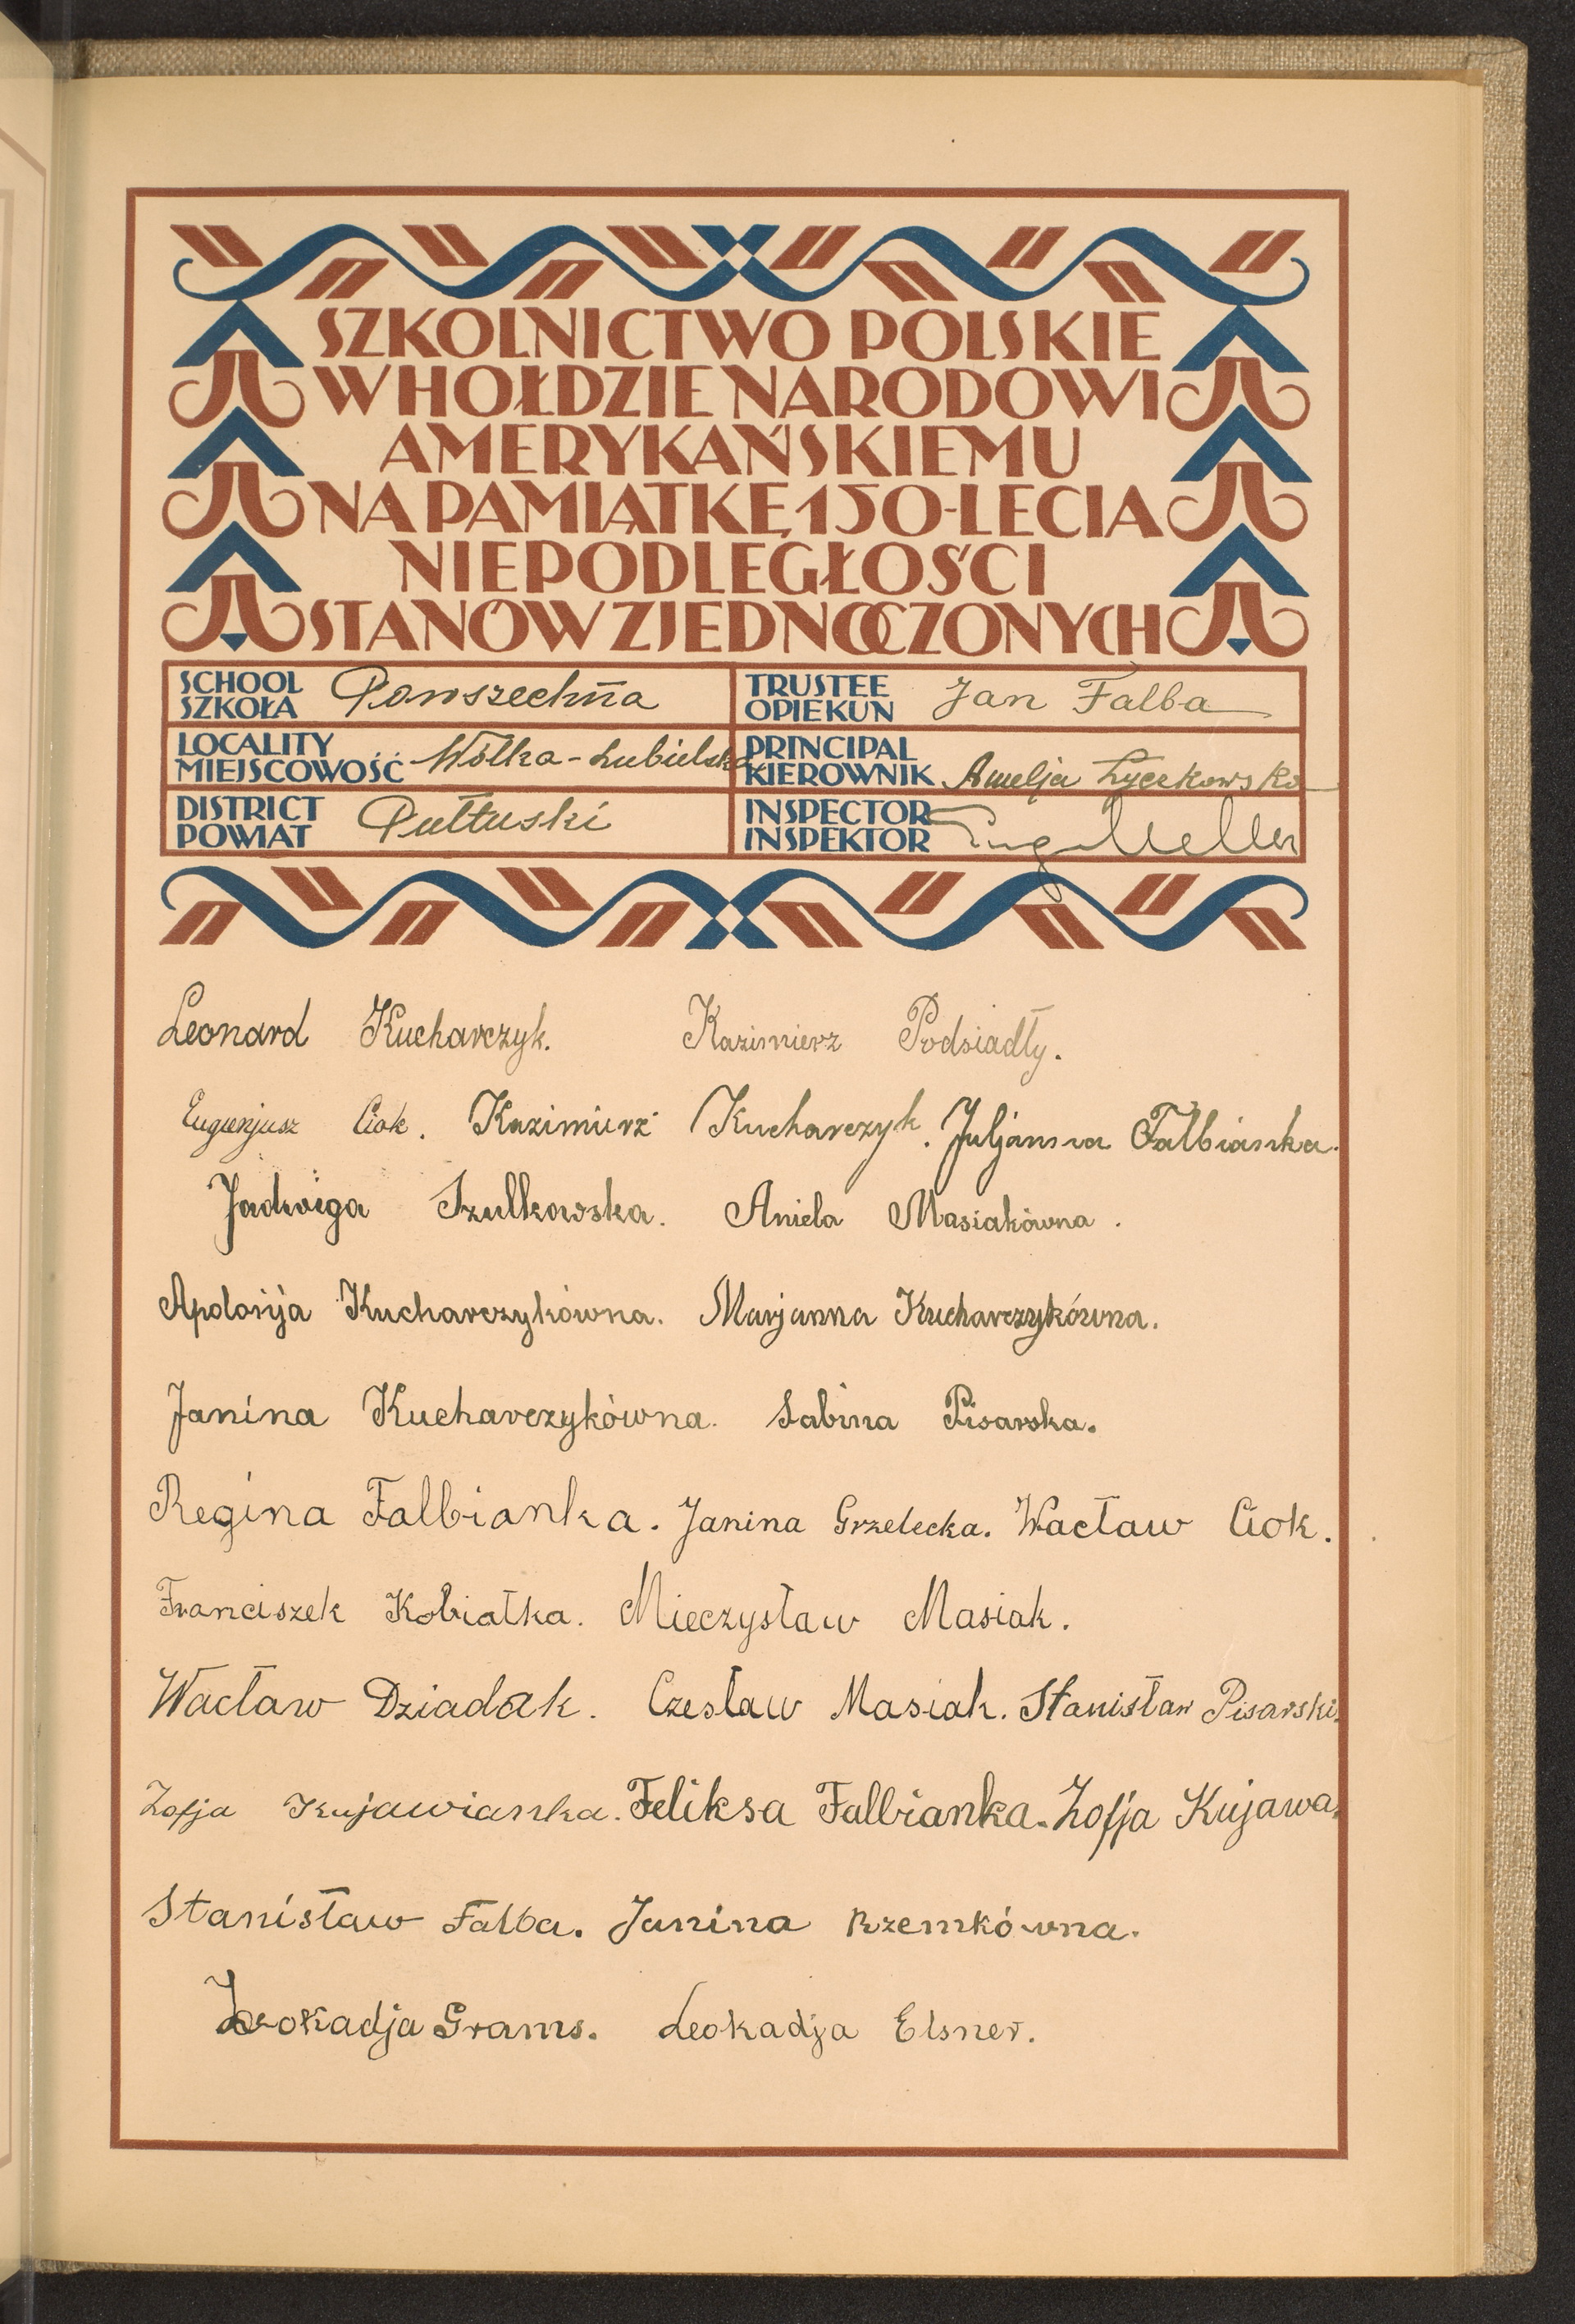 SZKOLNICTWO POLSKIE
W HOŁDZIE NARODOWI
AMERYKAŃSKIEMU
NA PAMIĄTKĘ 150-LECIA
NIEPODLEGŁOŚCI
STANÓW ZJEDNOCZONYCH
SCHOOL
SZKOŁA Powszechna
TRUSTEE
OPIEKUN Jan Falba
LOCALITY
MIEJSCOWOŚĆ Wólka-Łubielska
PRINCIPAL
KIEROWNIK Amelja
DISTRICT
POWIAT Pułtuski
INSPECTOR
INSPEKTOR
Leonard Kucharczyk. Kazimierz Podsiadły.
Eugenjusz Ciok. Kazimierz Kucharczyk. Juljanna Falbianka.
Jadwiga Szulkowska. Aniela Masiakówna.
Apolonja Kucharczykówna. Marjanna Kucharczykówna.
Janina Kucharczykówna. Sabina Pisarska.
Regina Falbianka. Janina Grzelecka. Wacław Ciok.
Franciszek Kobiałka. Mieczysław Masiak.
Wacław Dziadak. Czesław Masiak. Stanisław Pisarski.
Zofja Kujawianka. Feliksa Falbianka. Zofja Kujawa.
Stanisław Falba. Janina Rzemkówna.
Leokadja Grams. Leokadja Elsner.